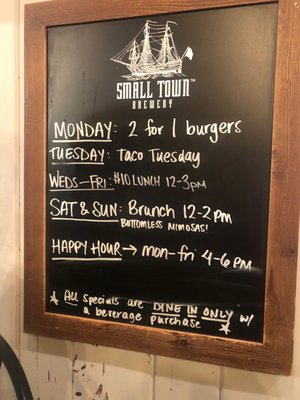 SMALL TOWN™
BREWERY
MONDAY: 2 for 1 burgers
TUESDAY: Taco Tuesday
WEDS-FRI: $10 LUNCH 12-3pm
SAT & SUN: Brunch 12-2pm
BOTTOMLESS MIMOSAS!
HAPPY HOUR → mon-fri 4-6pm
☆ All specials are DINE IN ONLY w/
a beverage purchase ☆